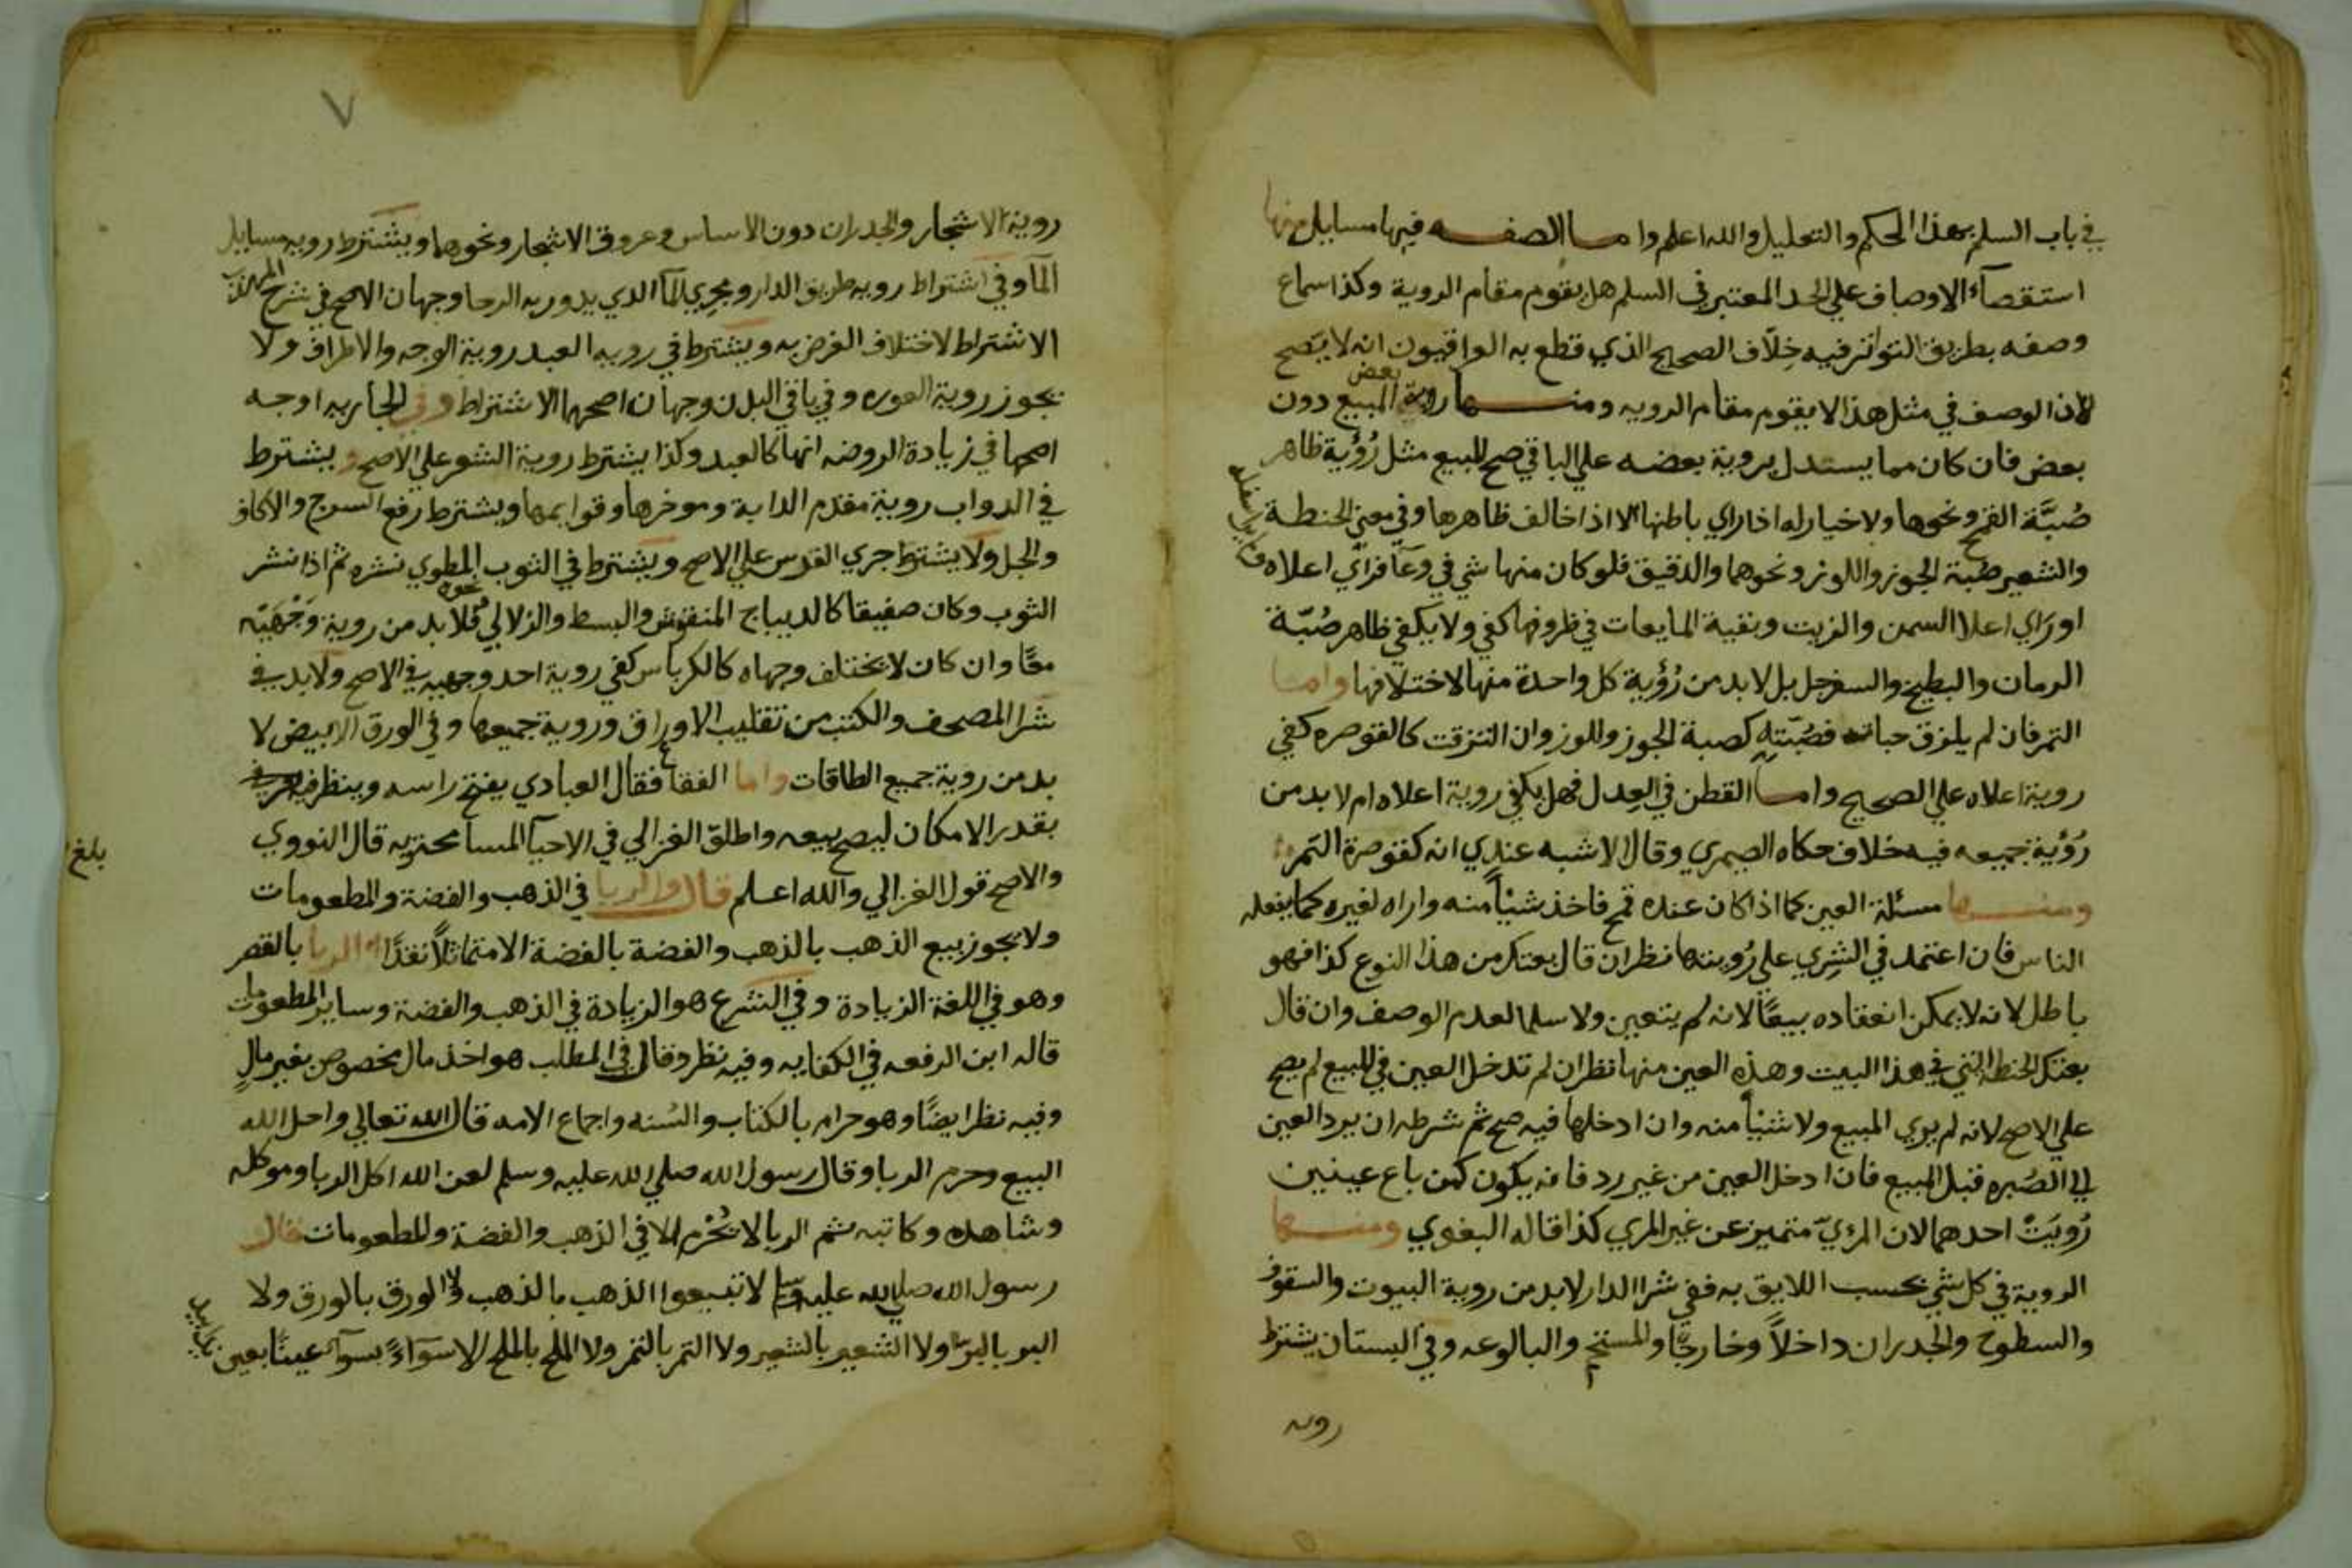 في باب السلم بهذا الحكم والتعليل والله اعلم واما الصفه فيها مسايل منها
استقصآء الاوصاف علي الحد المعتبر في السلم هل يقوم مقام الروية وكذا سماع
وصفه بطريق التواتر فيه خلاف الصحيح الذي قطع به العراقيون انه لا يصح
لان الوصف في مثل هذا لا يقوم مقام الرويه ومنها روية بعض المبيع دون
بعض فان كان مما يستدل بروية بعضه علي الباقي صح البيع مثل رُؤية ظاهر
صُبَّة القمح ونحوها ولا خيار له اذا راي باطنها الا اذا خالف ظاهرها وفي معني الحنطة
والشعير صُبة الجوز واللوز ونحوهما والدقيق فلو كان منها شي في وعآ فراي اعلاه
او رَاي اعلا السمن والزيت وبقية المايعات في ظروفها كفي ولا يكفي ظاهر صُبّة
الرمان والبطيخ والسفرجل بل لا بد من رُؤية كل واحدة منها لاختلافها واما
التمر فان لم يلزق حباته فصُبّته كصبة الجوز واللوز وان التزقت كالقوصره كفي
روية اعلاه علي الصحيح واما القطن في العِدل فهل يكفي روية اعلاه ام لا بد من
رُؤية جميعه فيه خلاف حكاه الصيمري وقال الاشبه عندي انه كقوصرة التمر
ومنها مسئلة العين كما اذا كان عنده قمح فاخذ شيئاً منه واراه لغيره كما يفعله
الناس فان اعتمد في الشِري علي رُويتها نظر ان قال بعتك من هذا النوع كذا فهو
باطل لانه لا يمكن انعقاده بيعًا لانه لم يتعين ولا سلما لعدم الوصف وان قال
بعتك الحنطه التي في هذا البيت وهذه العين منها نظر ان لم تدخل العين في البيع لم يصح
علي الاصح لانه لم يري المبيع ولا شيئاً منه وان ادخلها فيه صح ثم شرطه ان يرد العين
الي الصُبره قبل المبيع فان ادخل العين من غير رد فانه يكون كمن باع عينين
رُويَتْ احدهما لان المرءيّ متميز عن غير المري كذا قاله البغوي ومنها
الروية في كل شي بحسب اللايق به ففي شرا الدار لابد من روية البيوت والسقوف
والسطوح والجدران داخلاً وخارجًا والمستحم والبالوعه وفي البستان يشترط
رويه
٧
روية الاشجار والجدران دون الاساس وعروق الاشجار ونحوها ويشترط رويه مسايل
المآ وفي اشتراط رويه طريق الدار ومجري المآ الذي يدور به الرحا وجهان الاصح في شرح المهذب
الاشتراط لاختلاف الغرض به ويشترط في رويه العبد روية الوجه والاطراف ولا
يجوز روية العوره وفي باقي البدن وجهان اصحهما الاشتراط وفي الجاريه اوجه
اصحها في زيادة الروضه انها كالعبد وكذا يشترط روية الشعر علي الاصح ويشترط
في الدواب روية مقدم الدابة وموخرها وقوايمها ويشترط رفع السرج والاكاف
والجل ولا يشترط جري الفرس علي الاصح ويشترط في الثوب المطوي نشره ثم اذا نشر
الثوب وكان صفيقا كالديباج المنقوش والبسط والزلالي ونحوه فلا بد من روية وَجْهَيْه
معًا وان كان لا يختلف وجهاه كالكرباس كفي روية احد وجهيه في الاصح ولابد في
شرا المصحف والكتب من تقليب الاوراق وروية جميعها وفي الورق الابيض لا
بد من روية جميع الطاقات واما الفقاع فقال العبادي يفتح راسه وينظر فيه
بقدر الامكان ليصح بيعه واطلق الغزالي في الاحيآ المسامحة به قال النووي
والاصح قول الغزالي والله اعلم قال والربا في الذهب والفضة والمطعومات
ولا يجوز بيع الذهب بالذهب والفضة بالفضة الا متماثلاً نقدًا الربا بالقصر
وهو في اللغة الزيادة وفي الشرع هو الزيادة في الذهب والفضة وساير المطعومات
قاله ابن الرفعه في الكفايه وفيه نظر وقال في المطلب هو اخذ مال مخصوص بغير مالٍ
وفيه نظر ايضًا وهو حرام بالكتاب والسُنه واجماع الامه قال الله تعالي واحل الله
البيع وحرم الربا وقال رسول الله صلي الله عليه وسلم لعن الله اكل الربا وموكله
وشاهده وكاتبه ثم الربا لا يَحْرُم الا في الذهب والفضة والمطعومات قال
رسول الله صلي الله عليه وسلم لا تبيعوا الذهب بالذهب ولا الورق بالورق ولا
البر بالبر ولا الشعير بالشعير ولا التمر بالتمر ولا الملح بالملح الا سوَآءً بسوَآء عينًا بعين
بلغ